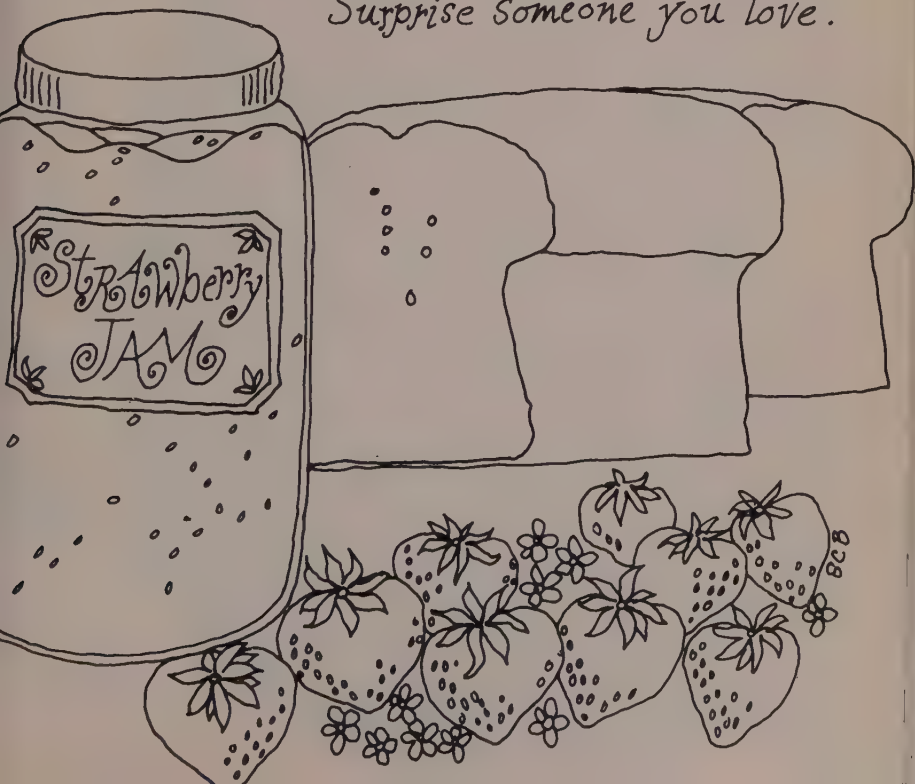 Surprise someone you love.
Strawberry
JAM
BCB